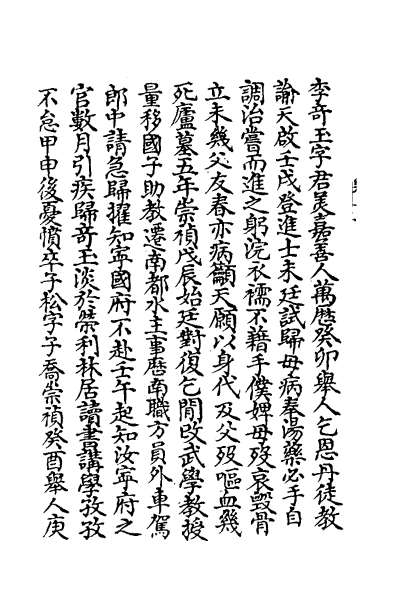 李奇玉字君美嘉善人萬曆癸卯舉人乞恩丹徒教
諭天啟壬戌登進士未廷試歸母病奉湯藥必手自
調治嘗而進之躬浣衣襦不藉手僕婢母歿哀毀骨
立未幾父友春亦病籲天願以身代及父歿嘔血幾
死廬墓五年崇禎戊辰始廷對復乞閒改武學教授
量移國子助教遷南都水主事歷南職方員外車駕
郎中請急歸擢知寧國府不赴壬午起知汝寧府之
官數月引疾歸奇玉淡於榮利林居讀書講學孜孜
不怠甲申後憂憤卒子松字子喬崇禎癸酉舉人庚